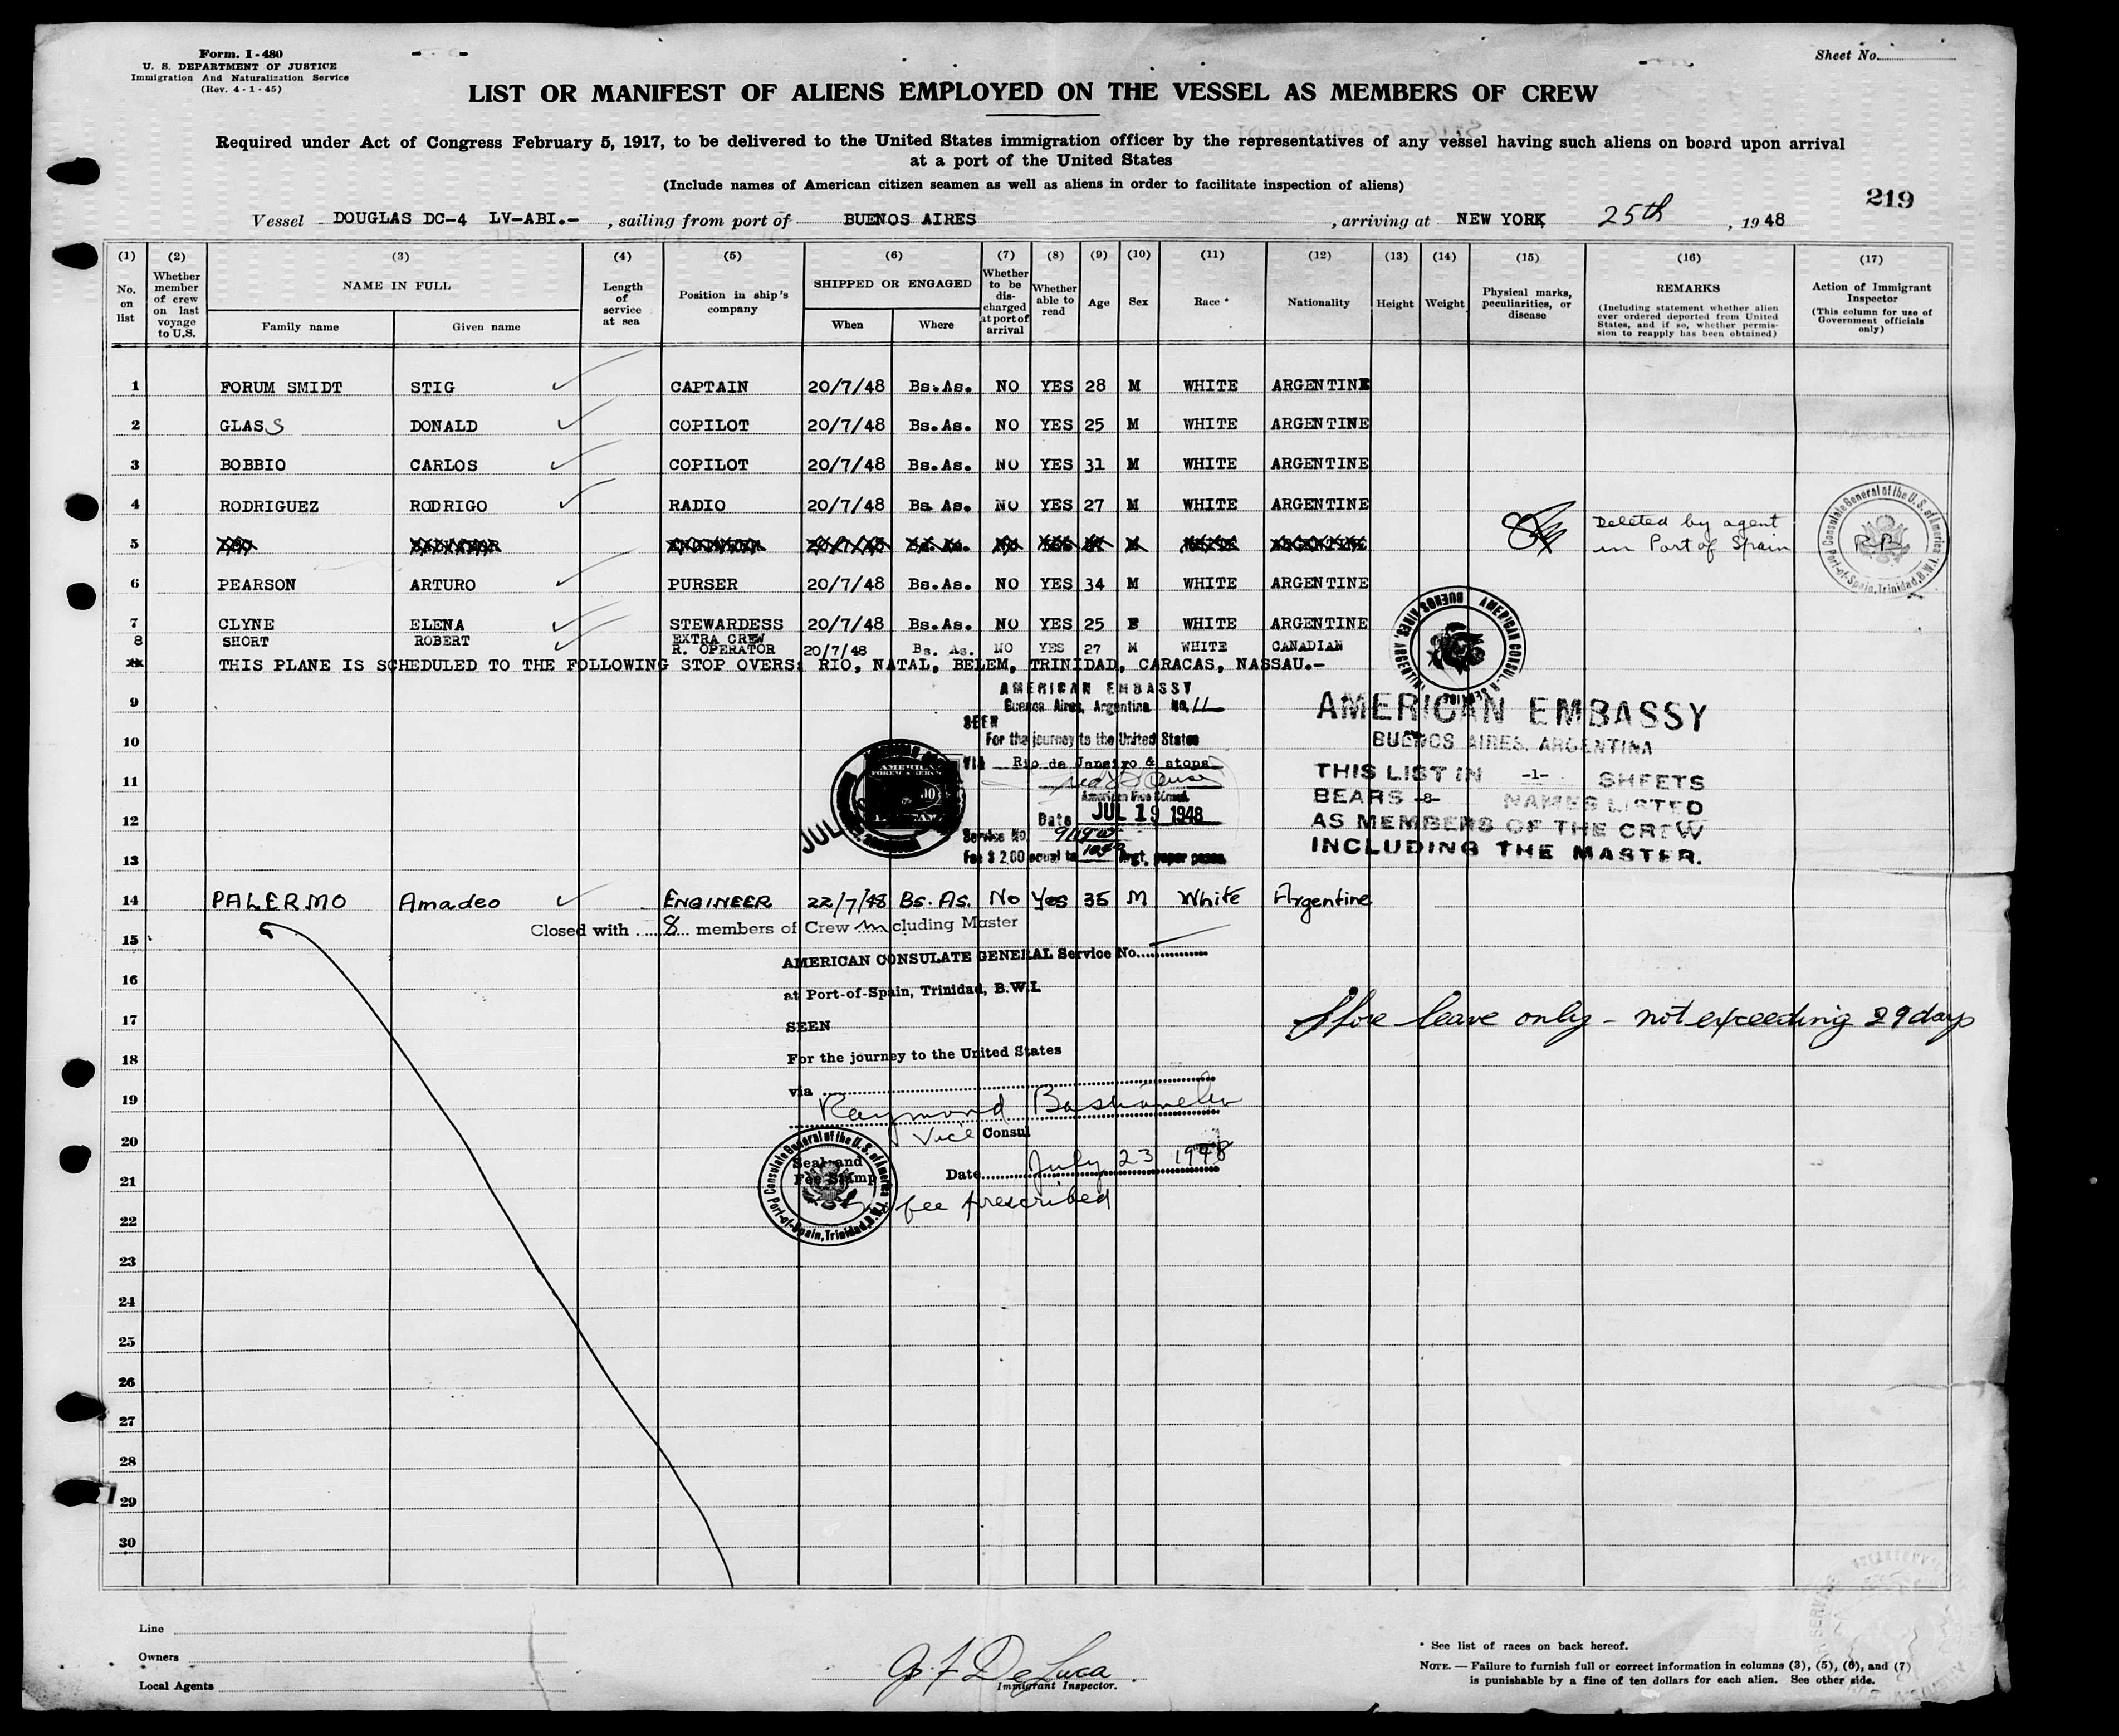 Form. I-480
U. S. DEPARTMENT OF JUSTICE
Immigration And Naturalization Service
(Rev. 4-1-45)
Sheet No.
LIST OR MANIFEST OF ALIENS EMPLOYED ON THE VESSEL AS MEMBERS OF CREW
Required under Act of Congress February 5, 1917, to be delivered to the United States immigration officer by the representatives of any vessel having such aliens on board upon arrival
at a port of the United States
(Include names of American citizen seamen as well as aliens in order to facilitate inspection of aliens)
219
Vessel DOUGLAS DC-4 LV-ABI.- , sailing from port of BUENOS AIRES , arriving at NEW YORK, 25th , 1948
(1) (2) (3) (4) (5) (6) (7) (8) (9) (10) (11) (12) (13) (14) (15) (16) (17)
No. on list
Whether member of crew on last voyage to U.S.
NAME IN FULL
Family name Given name
Length of service at sea
Position in ship's company
SHIPPED OR ENGAGED
When Where
Whether to be discharged at port of arrival
Whether able to read
Age
Sex
Race *
Nationality
Height
Weight
Physical marks, peculiarities, or disease
REMARKS
(Including statement whether alien ever ordered deported from United States, and if so, whether permission to reapply has been obtained)
Action of Immigrant Inspector
(This column for use of Government officials only)
1 FORUM SMIDT STIG CAPTAIN 20/7/48 Bs.As. NO YES 28 M WHITE ARGENTINE
2 GLASS DONALD COPILOT 20/7/48 Bs.As. NO YES 25 M WHITE ARGENTINE
3 BOBBIO CARLOS COPILOT 20/7/48 Bs.As. NO YES 31 M WHITE ARGENTINE
4 RODRIGUEZ RODRIGO RADIO 20/7/48 Bs. As. NO YES 27 M WHITE ARGENTINE
5 Deleted by agent
in Port of Spain
RB
Consulate General of the U.S. of America
Port-of-Spain, Trinidad, B.W.I.
6 PEARSON ARTURO PURSER 20/7/48 Bs.As. NO YES 34 M WHITE ARGENTINE
7 CLYNE ELENA STEWARDESS 20/7/48 Bs.As. NO YES 25 F WHITE ARGENTINE
8 SHORT ROBERT EXTRA CREW R. OPERATOR 20/7/48 Bs. As. NO YES 27 M WHITE CANADIAN
THIS PLANE IS SCHEDULED TO THE FOLLOWING STOP OVERS: RIO, NATAL, BELEM, TRINIDAD, CARACAS, NASSAU.-
AMERICAN CONSULAR SERVICE
BUENOS AIRES, ARGENTINA
AMERICAN EMBASSY
Buenos Aires, Argentina No. 11
SEEN
For the journey to the United States
VIA Rio de Janeiro & stops
American Vice Consul
Date JUL 19 1948
Service No.
Fee $ 2,00 equal to Argt. paper pesos.
AMERICAN EMBASSY
BUENOS AIRES, ARGENTINA
THIS LIST IN -1- SHEETS
BEARS -8- NAMES LISTED
AS MEMBERS OF THE CREW
INCLUDING THE MASTER.
9
10
11
12
13
14 PALERMO Amadeo ENGINEER 22/7/48 Bs. As. No Yes 35 M White Argentine
Closed with 8 members of Crew including Master
15
AMERICAN CONSULATE GENERAL Service No.
16
at Port-of-Spain, Trinidad, B.W.I.
17
SEEN
Shore leave only - not exceeding 29 days
18
For the journey to the United States
19
via
Raymond
20
Vice Consul
Seal and
Fee Stamp
Date July 23 1948
21
fee prescribed
Consulate General of the U.S. of America
Port-of-Spain, Trinidad, B.W.I.
22
23
24
25
26
27
28
29
30
Line
Owners
Local Agents
G. F. DeLuca
Immigrant Inspector.
* See list of races on back hereof.
NOTE. — Failure to furnish full or correct information in columns (3), (5), (6), and (7)
is punishable by a fine of ten dollars for each alien. See other side.